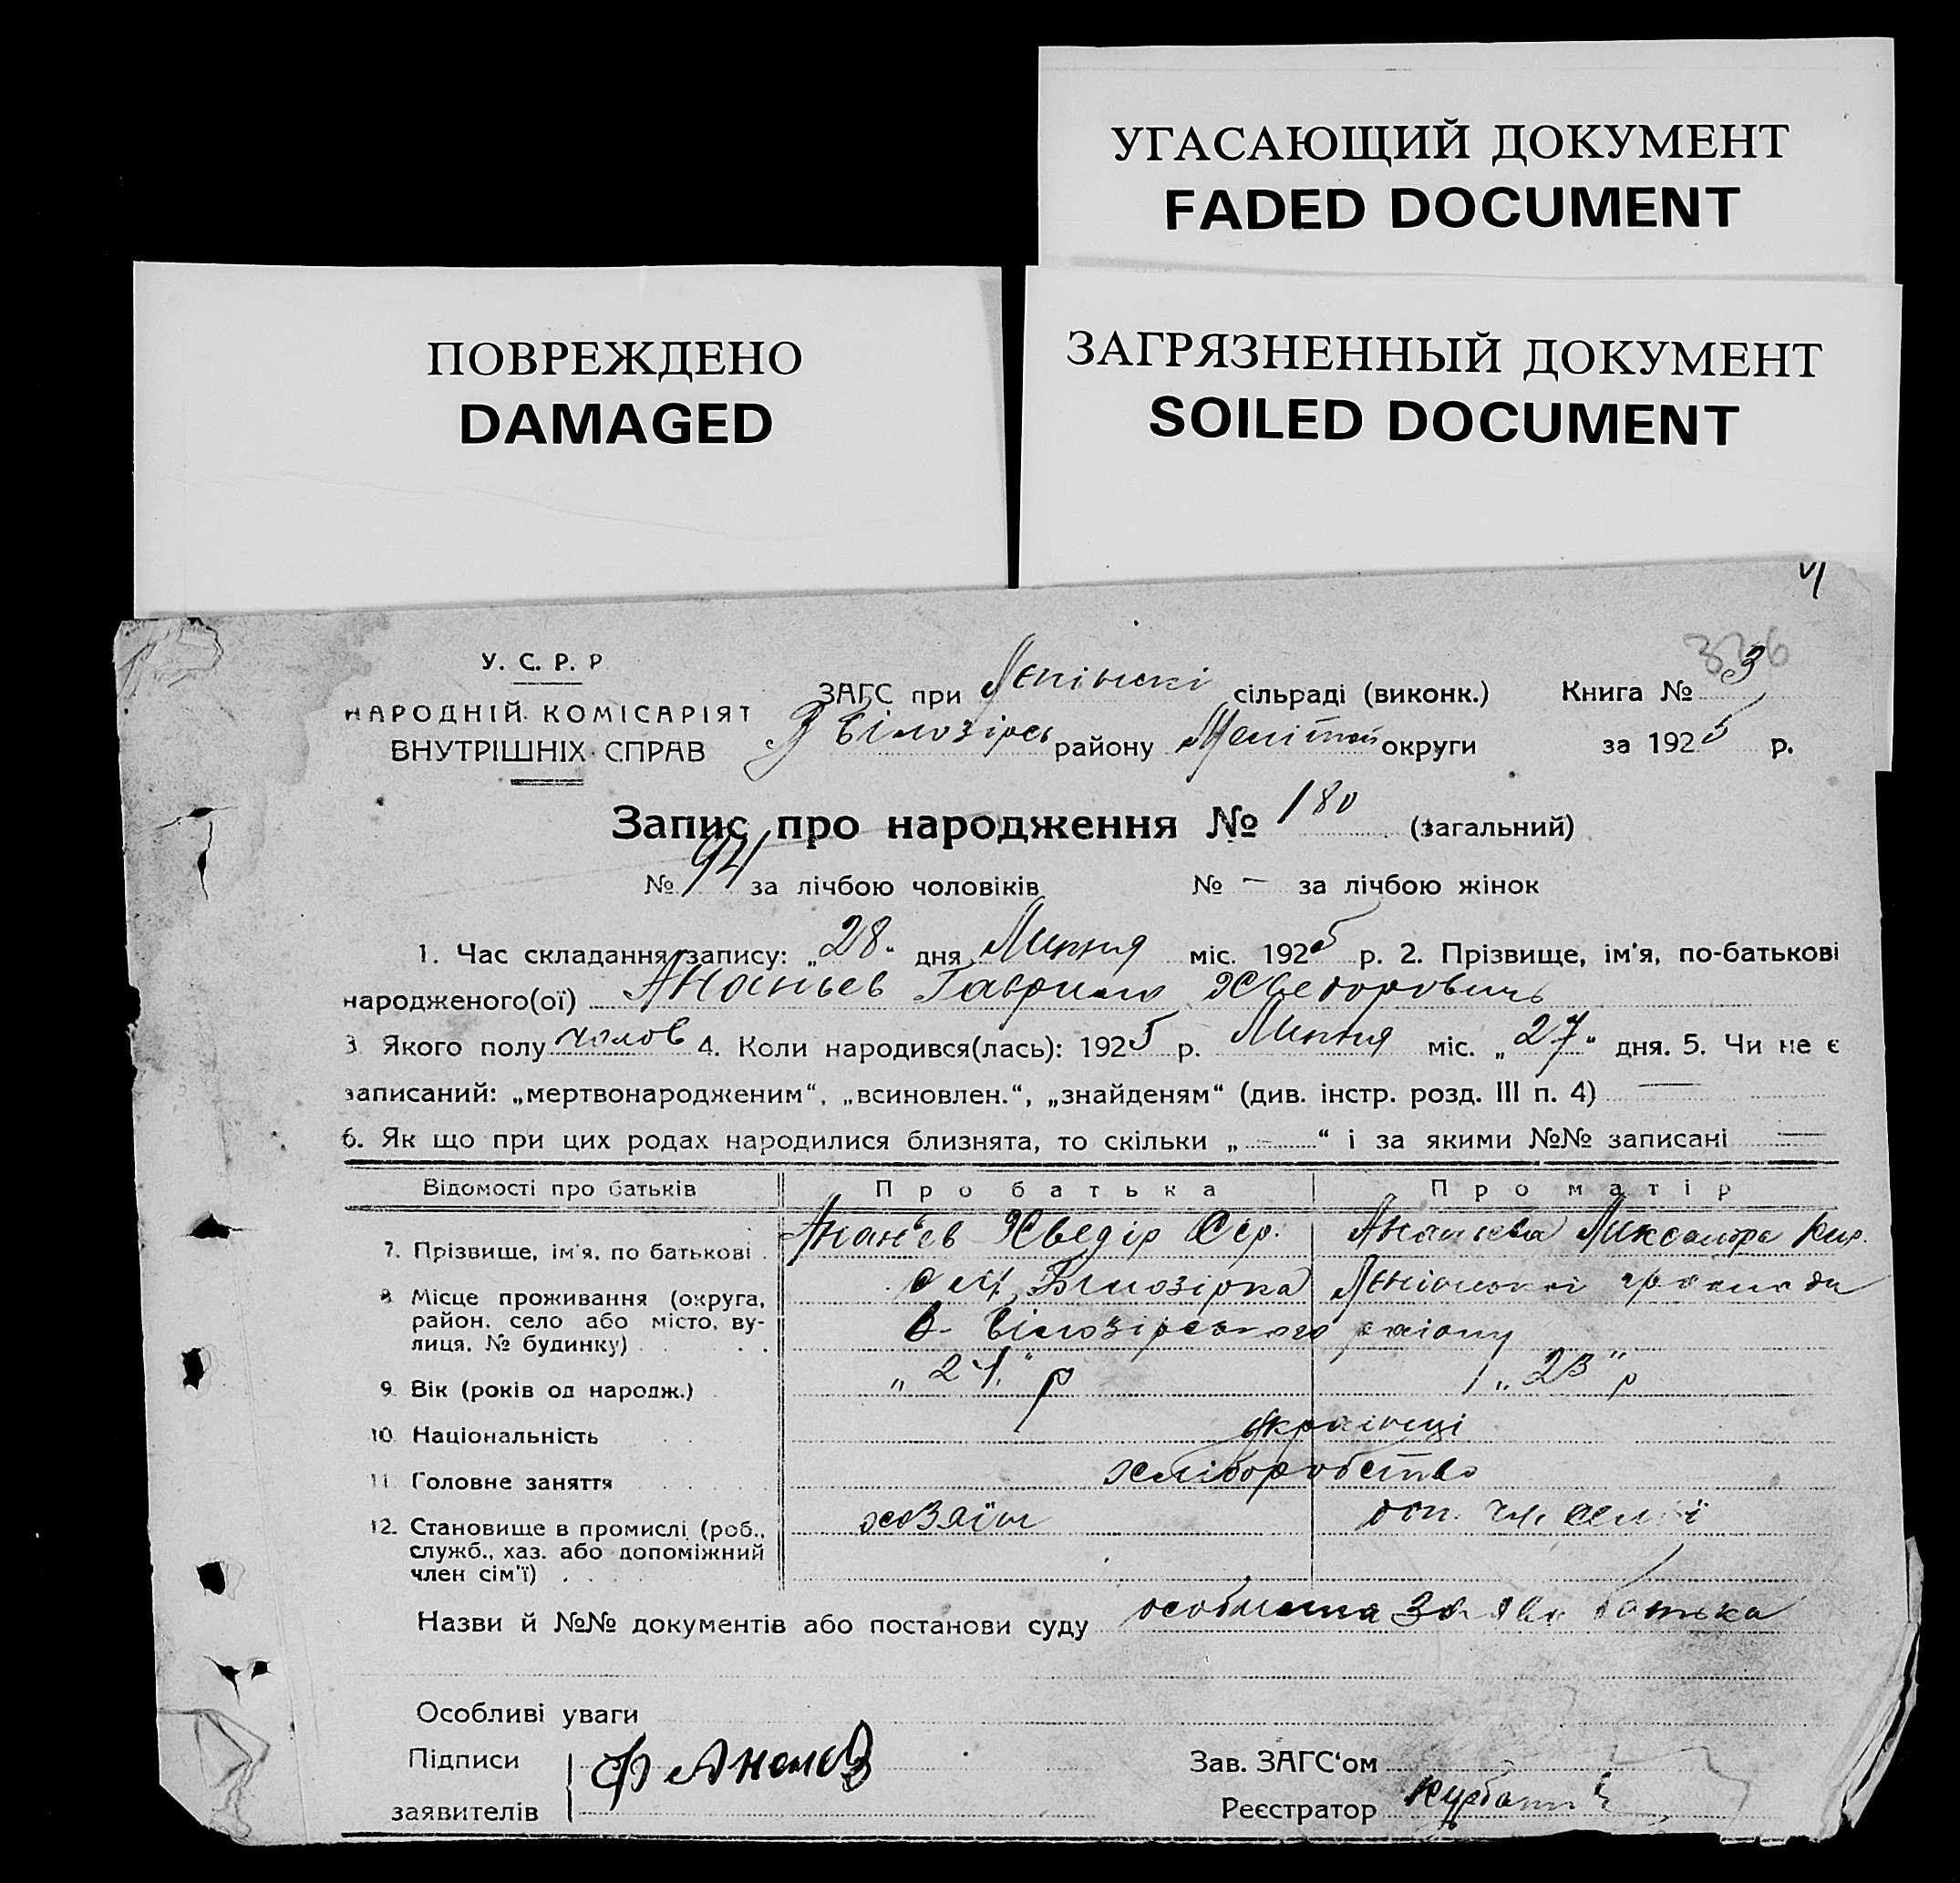 УГАСАЮЩИЙ ДОКУМЕНТ
FADED DOCUMENT
ПОВРЕЖДЕНО
DAMAGED
ЗАГРЯЗНЕННЫЙ ДОКУМЕНТ
SOILED DOCUMENT
336
У. С. Р. Р
НАРОДНІЙ КОМІСАРІЯТ
ВНУТРІШНІХ СПРАВ
ЗАГС при Ленінскі сільраді (виконк.) Книга № 3
В Білозірсь району Меліт округи за 1925 р.
Запис про народження № 180 (загальний)
№ 94 за лічбою чоловіків № — за лічбою жінок
1. Час складання запису: „28“ дня Липня міс. 1925 р. 2. Прізвище, ім'я, по-батькові
народженого(ої) Ананьев Гаврило Хведоровичь
3 Якого полу чолов 4. Коли народився(лась): 1925 р. Липня міс. „27“ дня. 5. Чи не є
записаний: „мертвонародженим“, „всиновлен.“, „знайденям“ (див. інстр. розд. III п. 4) —
6. Як що при цих родах народилися близнята, то скільки „—“ і за якими №№ записані —
Відомості про батьків Про батька Про матір
7. Прізвище, ім'я, по батькові Ананьев Хведір Сер. Ананьева Лександра Кир.
8 Місце проживання (округа, район, село або місто, вулиця, № будинку) Білозірка Ленінскоі громади
В- Білозірського району
9. Вік (років од народж.) „24“ р „23“ р
10. Національність Українці
11. Головне заняття хліборобство
12. Становище в промислі (роб., служб., хаз. або допоміжний член сім'ї) хозяїн доп. чл. семї
Назви й №№ документів або постанови суду особиста заява батька
Особливі уваги
Підписи
заявителів
Ф Ананев
Зав. ЗАГС'ом
Реєстратор